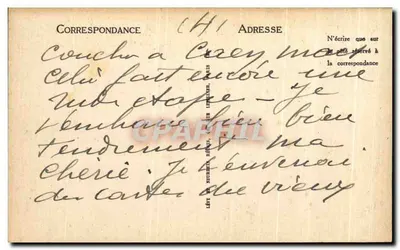 CORRESPONDANCE
(4)
ADRESSE
N'écrire que sur
le côté réservé à
la correspondance
coucher à Caen mais
cela fait encore une
étape - Je
t'embrasse bien bien
tendrement ma
chérie. Je t'enverrai
des cartes de vieux
CPAPHIL.COM